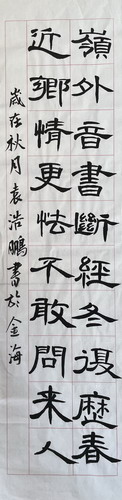 嶺外音書斷經冬復歷春
近鄉情更怯不敢問來人
歲在秋月袁浩鵬書於金海